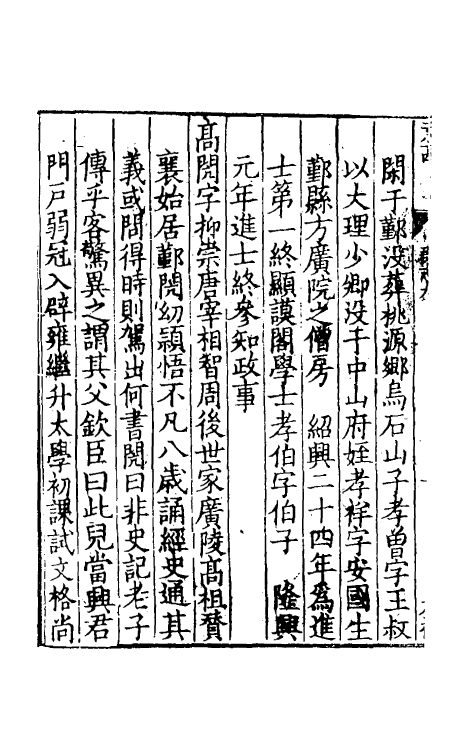 閑于鄞没葬桃源鄉烏石山子孝曾字王叔
以大理少卿没于中山府姪孝祥字安國生
鄞縣方廣院之僧房　紹興二十四年爲進
士第一終顯謨閣學士孝伯字伯子　隆興
元年進士終參知政事
高閌字抑崇唐宰相智周後世家廣陵高祖贇
襄始居鄞閌幼穎悟不凡八歲誦經史通其
義或問得時則駕出何書閌曰非史記老子
傳乎客驚異之謂其父欽臣曰此兒當興君
門戸弱冠入辟雍繼升太學初課試文格尚